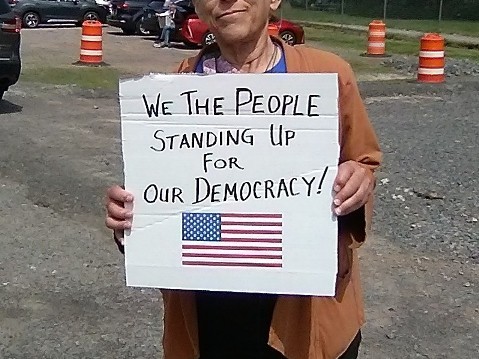 We The People
Standing Up
For
Our Democracy!